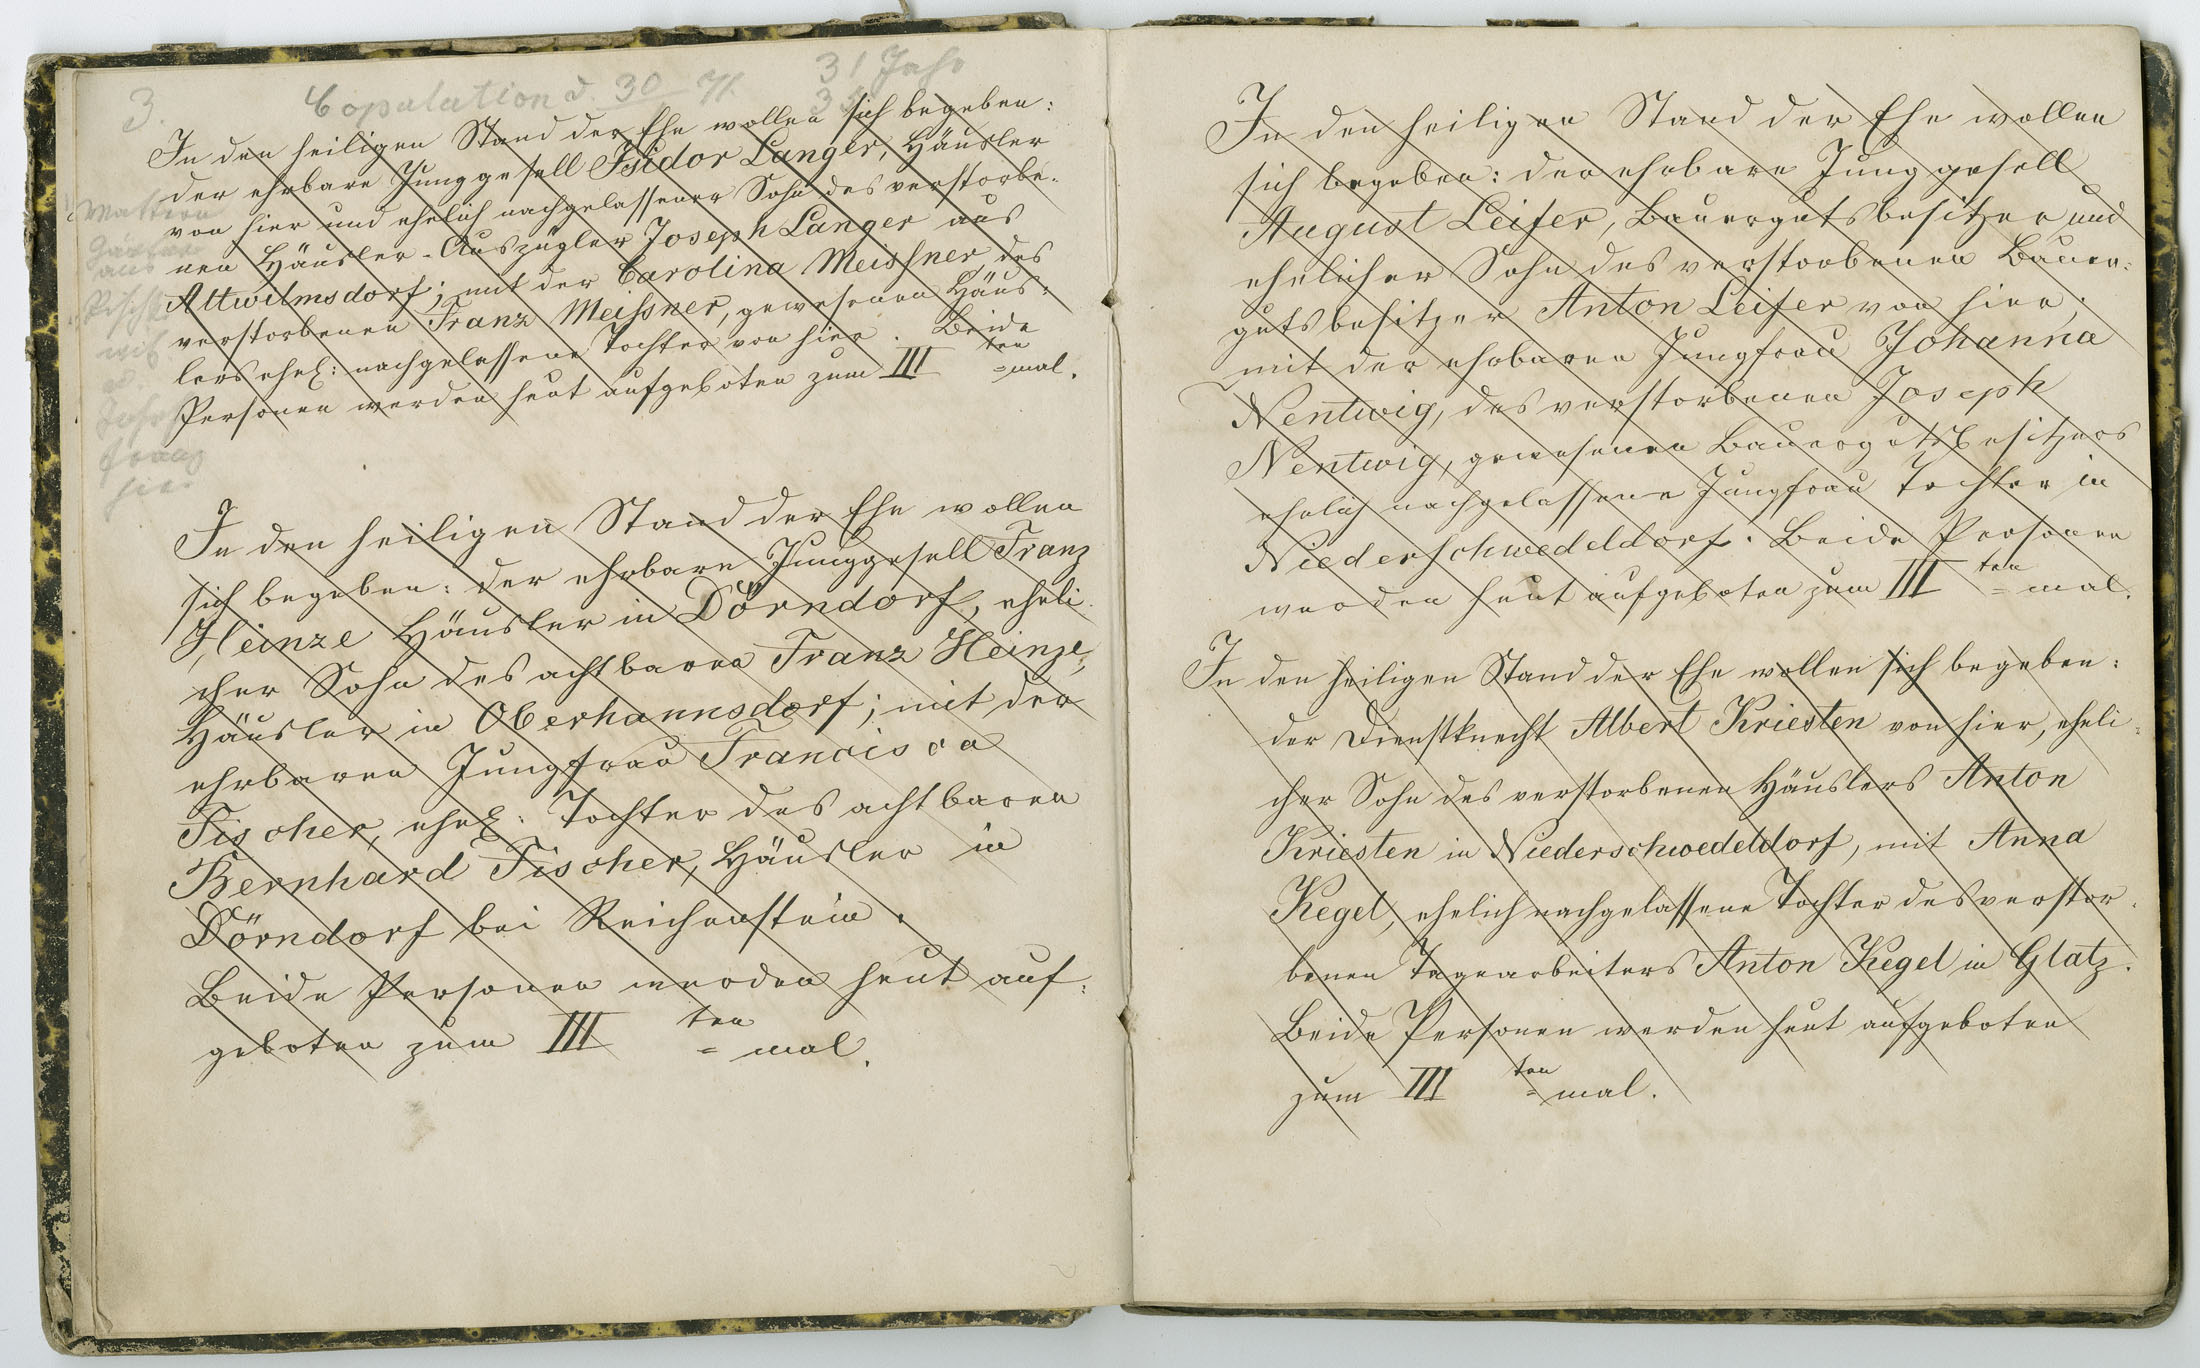 3.
Copulation d. 30
31 Jahr
35
In den heiligen Stand der Ehe wollen sich begeben:
der ehrbare Junggesell Isidor Langer, Häusler
von hier und ehelich nachgelassener Sohn des verstorbe-
nen Häusler-Auszügler Joseph Langer aus
Altwilmsdorf; mit der Carolina Meissner des
verstorbenen Franz Meissner, gewesenen Häus-
lers ehel: nachgelassene Tochter von hier. Beide
Personen werden heut aufgeboten zum III ten =mal.
In den heiligen Stand der Ehe wollen
sich begeben: der ehrbare Junggesell Franz
Heinze Häusler in Dörndorf, eheli-
cher Sohn des achtbaren Franz Heinze,
Häusler in Oberhannsdorf; mit der
ehrbaren Jungfrau Francisca
Fischer, ehel: Tochter des achtbaren
Bernhard Fischer, Häusler in
Dörndorf bei Reichenstein.
Beide Personen werden heut auf-
geboten zum III ten = mal.
In den heiligen Stand der Ehe wollen
sich begeben: der ehrbare Junggesell
August Leifer, Bauergutsbesitzer und
ehelicher Sohn des verstorbenen Bauer-
gutsbesitzer Anton Leifer von hier;
mit der ehrbaren Jungfrau Johanna
Nentwig, des verstorbenen Joseph
Nentwig, gewesenen Bauergutsbesitzers
ehelich nachgelassene Jungfrau Tochter in
Niederschwedeldorf. Beide Personen
werden heut aufgeboten zum III ten = mal.
In den heiligen Stand der Ehe wollen sich begeben:
der Dienstknecht Albert Kriesten von hier, eheli-
cher Sohn des verstorbenen Häuslers Anton
Kriesten in Niederschwedeldorf, mit Anna
Kegel, ehelich nachgelassene Tochter des verstor-
benen Tagearbeiters Anton Kegel in Glatz.
Beide Personen werden heut aufgeboten
zum III ten = mal.